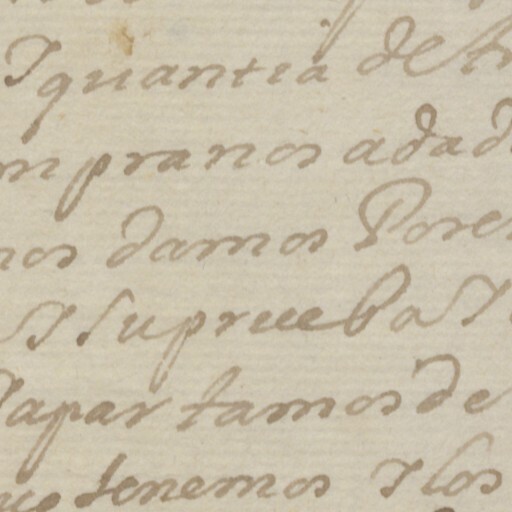 Y quantia de tr
mpra nos a dad
nos damos Por en
Y Su prueba Y
Y apartamos de
que tenemos Y los